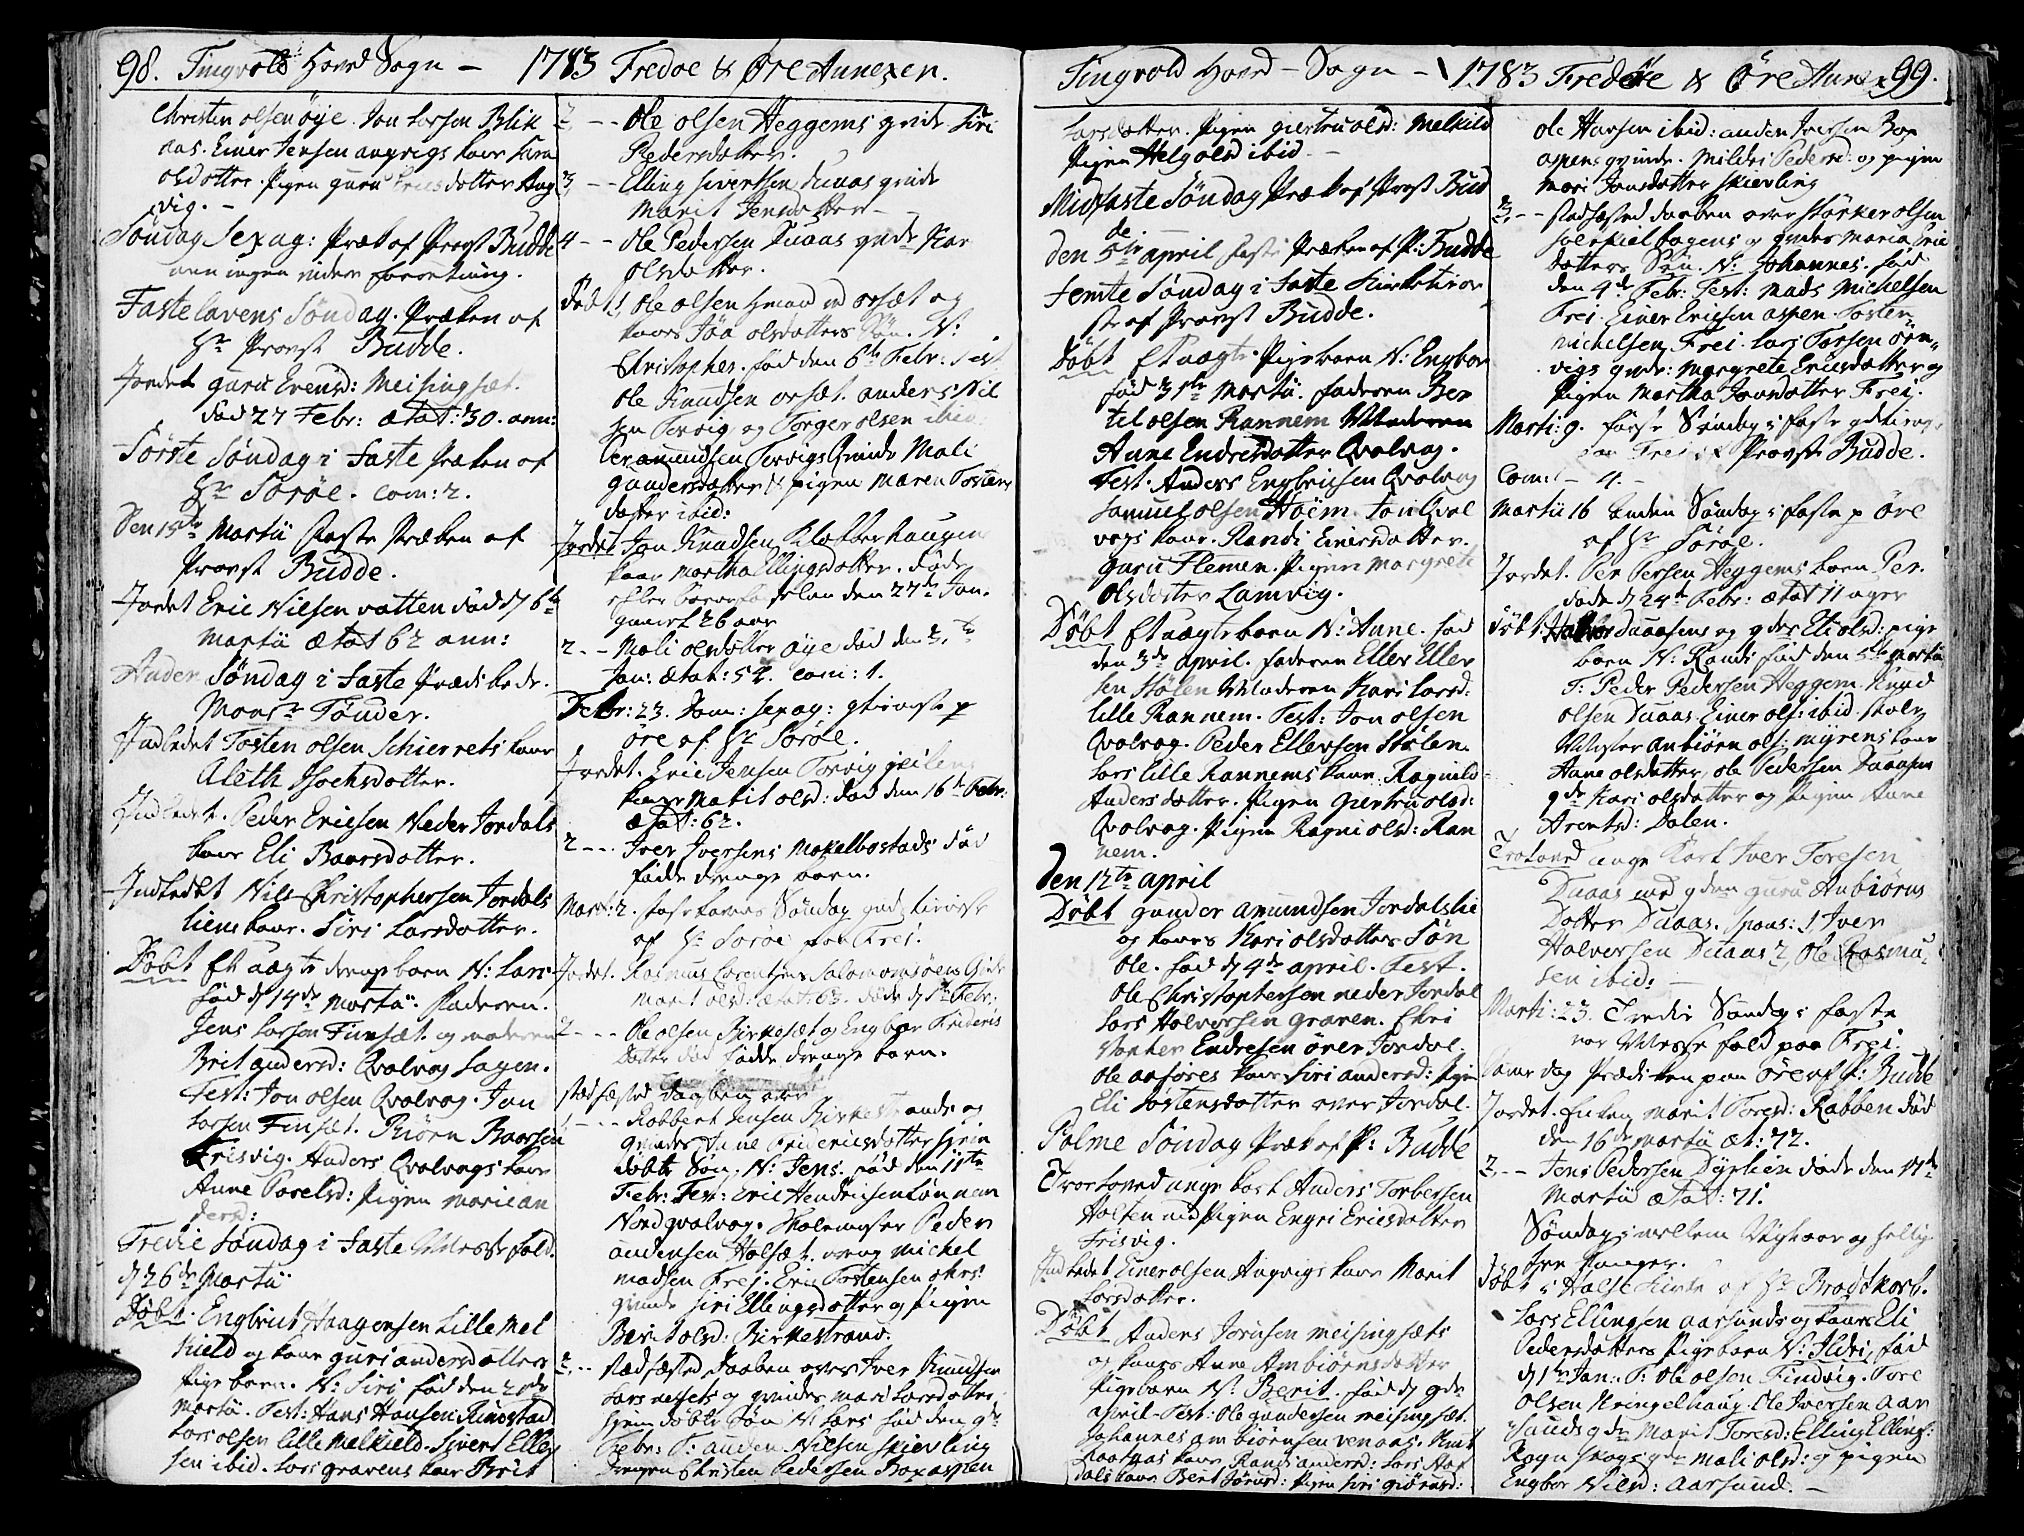 98. Tingvold Hoved Sogn – 1783 Fredøe & Øre Annexer.
Christen olsen øye. Jon Larsen Blik
aas. Einer Jensen angvigs kone Sara
olsdotter. Pigen guru Ericsdotter Ang
vig. –
Søndag Sexag: Præk af Provst Budde
men ingen videre forretning.
Fastelavens Søndag. Præken af
Hr Provst Budde.
Jordet guru Evensd: Meisingset.
død 27 Febr: ætat: 30. ann:
Første Søndag i Faste Præken af
Hr Sorøe. Com: 2.
Den 15de Martii Faste Præken af
Provst Budde.
Jordet Eric Nilsen vatten død d 6te
Martii ætat 62 ann:
Anden Søndag i Faste Præd:
Monsr Tønder.
Indledet Tosten olsen Schierrets kone
Aleth
Indledet. Peder Ericsen Neder Jordals
kone Eli Baarsdotter.
Indledet Nils Christophersen Jordals
liens kone. Siri Larsdotter.
Døbt Et uægte drengebarn N: Lars.
fød d 14de Martii. Faderen.
Jens Larsen Finsæt. og moderen
Brit andersd: Qvalvog hagen.
Test: Jon olsen Qvalvog. Jon
Larsen Finsæt. Biørn Baarsen
Frisvig. Anders Qvalvogs kone
Anne Povelsd: Pigen Mari an
dersd:
Tredie Søndag i Faste Messefald.
d 26de Martii
Døbt. Engbrict Haagensen Lille Mel
kield og kone guri andersdotters
Pige barn. N: Siri fød den 21de
Martii. Test: Hans Hansen Rimstad
Lars olsen lille Melkield. Sivert Elling
sen ibid. Lars gravens kone Brit
2 – – Ole olsen Heggems qvinde Siri
Pedersdotter.
3. – – Elling Sivertsen Duaas qvinde
Marit Jensdotter –
4 – – Ole Pedersen Duaas qvinde Kar
olsdotter.
Døbt 1, Ole olsen orsæt og
kones Joa olsdotters Søn. N:
Christopher. fød den 6te Febr: Test
Ole Knudsen orsæt. anders Nil
sen Torvig og Torger olsen ibid.
amundsen Torvigs Qvinde Mali
gundersdotter & pigen Maren Tostens
dotter ibid:
Jordet Jon Knudsen Klokkerhaugens
kone Martha Ellingsdotter. døde
efter barnfødselen den 27de Jan.
gammel 26 aar
2 – – Mali olsdotter øye død den 2.
Jan: ætat: 52. Com: 1.
Febr: 23. Dom: Sexag: p
øre af Hr Sorøe.
Jordet. Eric Jensen Torvig
kone Marit olsd: død den 16de Febr:
ætat: 62.
2 – – Iver Iversens Mokelbostads død
fødde drenge barn.
Mart: 2. Fastelavns Søndag
af Hr Sorøe paa Frei.
Jordet. Rasmus Lorentsens Salomonsøens Qvinde
Marit olsd: ætat: 63. døde d 1te Febr:
2 – – Ole olsen Birkesæt og Engbor Friderics
Dotter død fødde drenge barn.
stadfæsted Daaben over
1 – – Robbert Jensen Birkestrands og
qvindes Ane Fridericsdotter hjem
døbte Søn. N: Jens. fød den 11te
Febr: Test: Eric Hendricsen
Nordqvalvog. Skolemester Peder
andersen Holsæt. dreng Michel
Madsen Frei. Eric Tostensen
qvinde Siri Ellingsdotter og Pigen
Berit olsd: Birkestrand.
2 – – stadfæsted Daaben over Iver Knudsen
Larsnessets og qvindes Mari Larsdotter
hjem døbte Søn N: Lars fød den 9de
Febr: T: anden Nilsen Skievling
Drengen Christen Pedersen Boxaspen
Tingvold Hoved – Sogn – 1783 Fredøe & Øre Annex 99.
Larsdotter. Pigen giertru olsd: Melkild
Pigen Helg olsd ibid –
Midfaste Søndag Præk af Provst Bud
de
den 5te april Faste Præken af P: Budde
Femte Søndag i Faste
af Provst Budde.
Døbt Et uægte Pige barn N: Engbor
fød 31te Martii. Faderen Ber
til olsen Rannem Moderen
Anne Endresdotter Qvalvog.
Test. Anders Engbricsen Qvalvog
Samuel olsen Hoem. Jon Qval
vogs kone. Randi Einersdotter.
guru Flemen. Pigen Margrete
Olsdotter Lamvig.
Døbt Et uægte barn N: Anne. fød
den 3de april. Faderen Eller Eller
sen Stølen Moderen Kari Larsd:
lille Rannem. Test: Jon olsen
Qvalvog. Peder Ellersen Stølen.
Lars lille Rannems kone. Ragnild
Andersdotter. Pigen Giertru olsd:
Qvalvog. Pigen Ragni olsd: Ran
nem.
Den 12te april
Døbt gunder amundsen Jordalslie
og kones Kari olsdotters Søn
Ole. fød d 4de april. Test.
Ole Christophersen neder Jordal
Lars Halvorsen graven. Chri
stopher Endresen over Jordal.
Ole aafores kone Siri andersd: Pigen
Eli Tostensdotter over Jordal.
Palme Søndag Præk af P: Budde
Troelovd unge karl Anders Torbersen
Holten med Pigen Engri Ericsdotter
Frisvig.
Indledet Einer olsen Angvigs kone Marit
Larsdotter.
Døbt Anders Jonsen Meisingsæts
og kones Anne Ambiørnsdotter
Pigebarn N: Berit. fød d 9de
april – Test: Ole gundersen Meisingsæt.
Johannes ambiørnsen venaas. Knut
kone Randi andersd: Lars Aaf
dals kone Berit Jonsd: Pigen Siri
Ole Hansen ibid: anden Iversen Box
aspens qvinde. Mildri Pedersd: og pigen
Mari Jonsdotter Skievling
3. – – Stadfæsted daaben over Størker olsen
Solskielhagens og qvindes Maria Eric
dotters Søn. N: Johannes. fød
den 4de Febr: Test: Mads Michelsen
Frei. Einer Ericsen aspen. Tosten
Michelsen Frei. Lars Larsen ørn
vigs qvinde: Margrete Ericsdotter og
Pigen Martha Jonsdotter Frei.
Martii: 9. første Søndag i faste
paa Frei af Provst Budde.
Com: – 4. –
Martii 16 anden Søndag i faste p Øre
af Hr Sorøe.
Jordet. Per Persen Heggems barn Per.
døde d 24de Febr: ætat 11 uger
Døbt. Halvor Duaasens og qdes Eli olsd: pige
barn N: Randi fød den 5te Martii
T: Peder Pedersen Heggem. Knud
olsen Duaas. Einer ols: ibid. skole
Mester anbiørn ols: myrens kone
Anne olsdotter, ole Pedersen Duaasen
qde Kari olsdotter og Pigen Anne
Arentsd: Dalen.
Trolovd unge Karl Iver Toresen
Duaas med qden guru Anbiørns
Dotter Duaas. Spons: 1 Iver
Halvorsen Duaas 2, Ole Rasmu
sen ibid: –
Martii: 23. Tredie Søndag i faste
var Messefald paa Frei.
Samme dag Prædiken paa Øre af P: Budde
Jordet. Enken Marit Toresd: Rabben død
den 16de Martii æt: 72.
2 – – Jens Pedersen Dyrlien døde den 17de
Martii ætat: 71.
Søndag i mellem Nytaar og hellig
tre konger.
Døbt i Halse Kirke af Hr Brodtkorb.
Lars Ellingsen aarsunds og kones Eli
Pedersdotters Pigebarn N: Ildri, fød
d 1te Jan. T: Ole olsen Findvig. Tore
olsen Kringelhaug. Ole Iversen aar
sunds qde Marit Toresd: Elling Elling:
Rognskogs qde Mali olsd: og pigen
Engbor Nilsd: aarsund. –